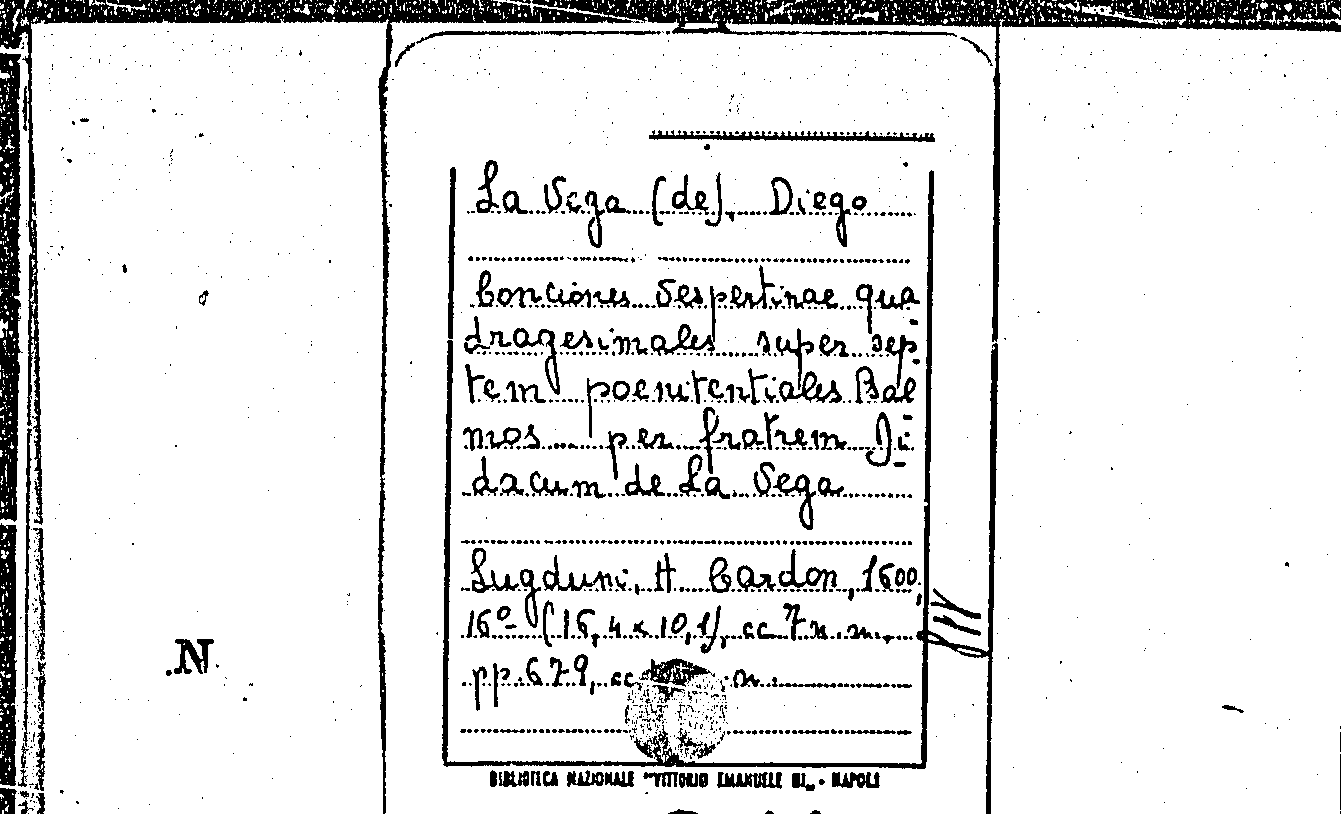 La Vega (de), Diego
Conciones Vespertinae qua-
dragesimales super sep-
tem poenitentiales Psal-
mos... per fratrem Di-
dacum de La Vega
Lugduni, H. Cardon, 1600,
16º (16,4 x 10,1), cc. 7 n. n.,
pp. 679, cc. n.
N
BIBLIOTECA NAZIONALE "VITTORIO EMANUELE III" - NAPOLI